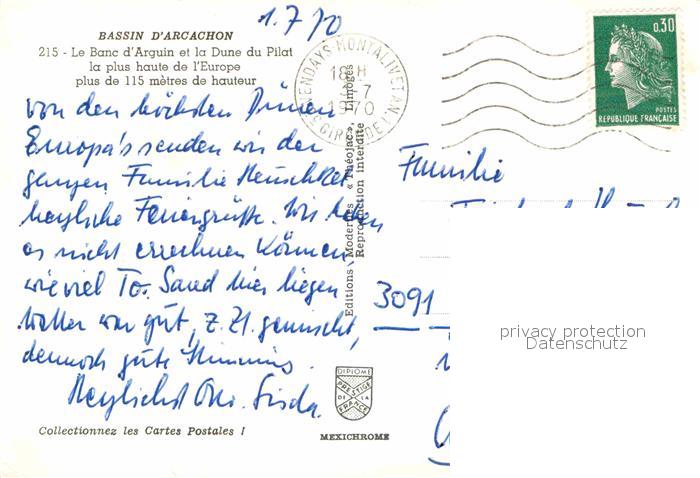 1.7.70
BASSIN D'ARCACHON
215 - Le Banc d'Arguin et la Dune du Pilat
la plus haute de l'Europe
plus de 115 mètres de hauteur
von den höchsten Dünen
Europa's senden wir der
ganzen Familie
herzliche Feriengrüsse. Wir haben
es nicht errechnen können,
wieviel To. Sand hier liegen
Wetter war gut, z. Zt. gemischt,
dennoch gute Stimmung.
Herzlichst
Collectionnez les Cartes Postales !
Editions Modernes « Théojac », Limoges
Reproduction interdite
DIPLOME
PRESTIGE
DE LA
FRANCE
MEXICHROME
VENDAYS-MONTALIVET
18 H
1-7
1970
GIRONDE
0,30
POSTES
REPUBLIQUE FRANÇAISE
Familie
3091
privacy protection
Datenschutz